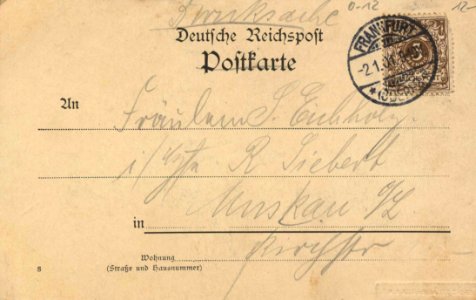 Drucksache
0-12
12-
Deutsche Reichspost
Postkarte
FRANKFURT
-2.1.
(ODER)
3
An
Fräulein S. Eichholz
R Siebert
Muskau O/L
in
Kirchstr
Wohnung
(Straße und Hausnummer)
8